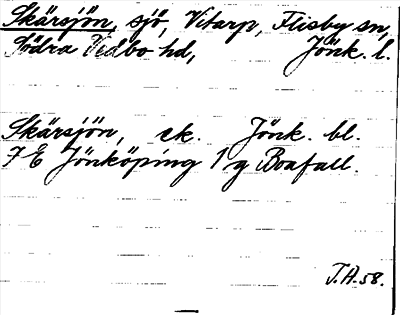 Skärsjön, sjö, Vitarp, Flisby sn,
Södra Vedbo hd, Jönk. l.
Skärsjön, ek. Jönk. bl.
7 E Jönköping 1 g Boafall.
J.A.58.